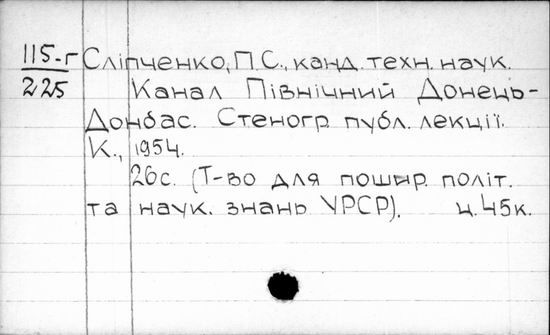 115-г Сліпченко, П.С., канд. техн. наук.
225 Канал Північний Донець-
Донбас. Стеногр. публ. лекції.
К., 1954.
26с. (Т-во для пошир. політ.
та наук. знань УРСР). ц.45к.